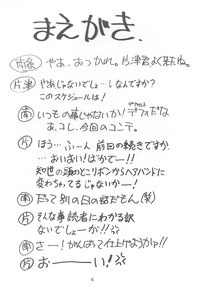 まえがき.
南奈 やぁ。おっかれ。片津君よく来たね。
片津 やぁじゃないでしょ…!なんですか?
このスケジュールは!
南 いつもの事じゃないか!デフォだなデフォ
あ、コレ、今回のコンテ。
片 ほう…ふーん 前回の続きですか…
…おいおい!ばかでー!!
知世の頭のとこリボンからヘアバンドに
変わちゃてるじゃないかー!
南 だって別の日の話だもん(笑)
片 そんな事読者にわかる訳
ないでしょーが!!
南 さー!がんばって仕上げようかァ!!
片 おーーーい!
4